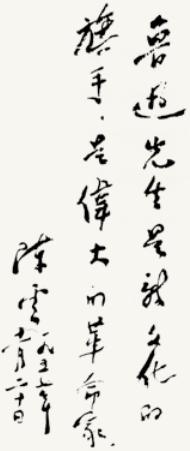 魯迅先生是新文化的
旗手，是偉大的革命家
陳雲
一九五七年
十一月二十日